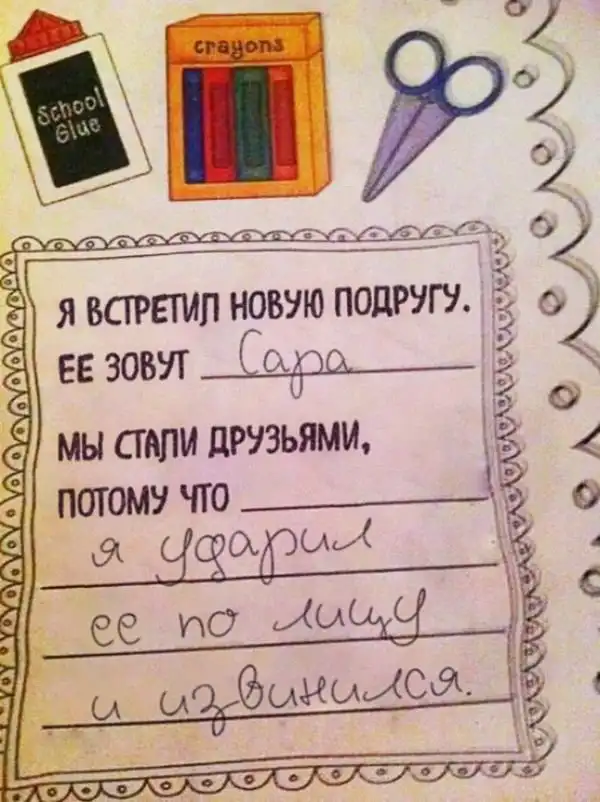 School
Glue
crayons
Я ВСТРЕТИЛ НОВУЮ ПОДРУГУ.
ЕЕ ЗОВУТ Сара
МЫ СТАЛИ ДРУЗЬЯМИ,
ПОТОМУ ЧТО
я ударил
ее по лицу
и извинился.